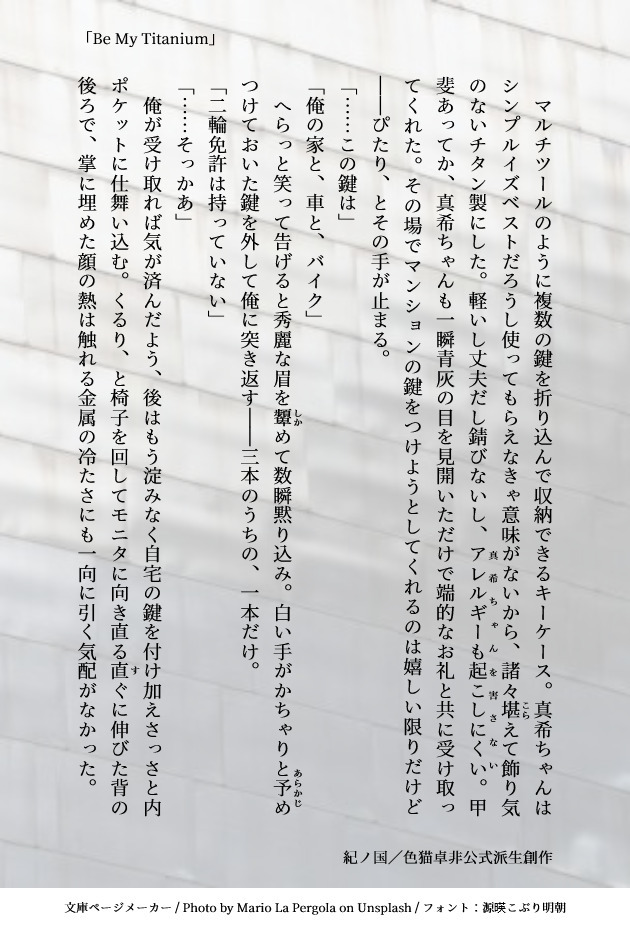 「Be My Titanium」
マルチツールのように複数の鍵を折り込んで収納できるキーケース。真希ちゃんは
シンプルイズベストだろうし使ってもらえなきゃ意味がないから、諸々堪えて飾り気
こら
のないチタン製にした。軽いし丈夫だし錆びないし、アレルギーも起こしにくい。甲
真希ちゃんを害さない
斐あってか、真希ちゃんも一瞬青灰の目を見開いただけで端的なお礼と共に受け取っ
てくれた。その場でマンションの鍵をつけようとしてくれるのは嬉しい限りだけど
――ぴたり、とその手が止まる。
「……この鍵は」
「俺の家と、車と、バイク」
へらっと笑って告げると秀麗な眉を顰めて数瞬黙り込み。白い手がかちゃりと予め
しか
あらかじ
つけておいた鍵を外して俺に突き返す――三本のうちの、一本だけ。
「二輪免許は持っていない」
「……そっかあ」
俺が受け取れば気が済んだよう、後はもう淀みなく自宅の鍵を付け加えさっさと内
ポケットに仕舞い込む。くるり、と椅子を回してモニタに向き直る直ぐに伸びた背の
す
後ろで、掌に埋めた顔の熱は触れる金属の冷たさにも一向に引く気配がなかった。
紀ノ国／色猫卓非公式派生創作
文庫ページメーカー / Photo by Mario La Pergola on Unsplash / フォント：源暎こぶり明朝